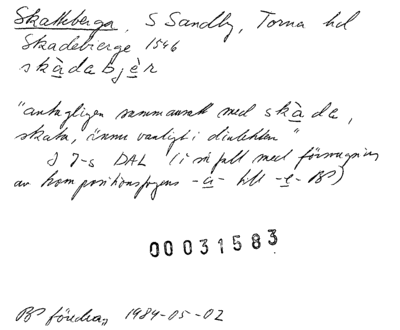 Skatteberga, S Sandby, Torna hd
Skadebierge 1546
skàdabjèr
"antagligen sammansatt med skàda,
skata, ännu vanligt i dialekten"
J-s DAL (i så fall med försvagning
av kompositionsfogens -a- till -e- BP)
00031583
BP föredrag 1984-05-02